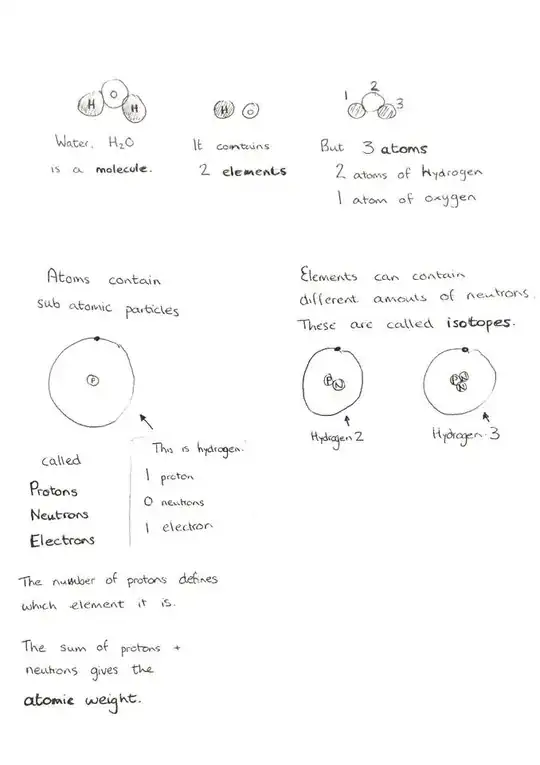 H O H
Water, H₂O
is a molecule.
H O
It contains
2 elements
1 2 3
But 3 atoms
2 atoms of Hydrogen
1 atom of oxygen
Atoms contain
sub atomic particles
P
called
Protons
Neutrons
Electrons
This is hydrogen.
1 proton
0 neutrons
1 electron
The number of protons defines
which element it is.
The sum of protons +
neutrons gives the
atomic weight.
Elements can contain
different amouts of neutrons.
These are called isotopes.
P N
Hydrogen 2
P N
N
Hydrogen 3